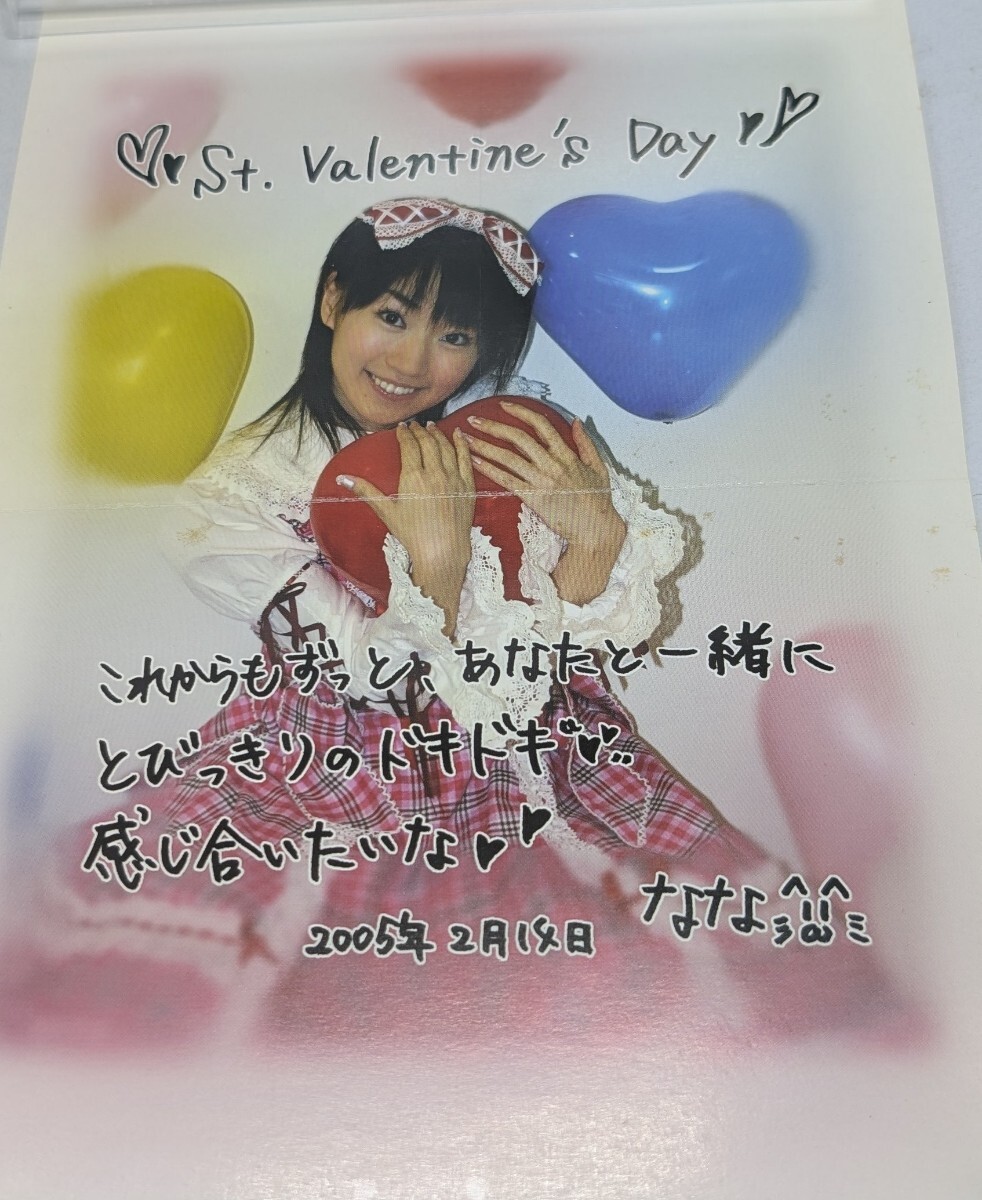 ♡♥St. Valentine's Day♥♡
これからもずっと、あなたと一緒に
とびっきりのドキドキ♥♥!!
感じ合いたいな♥♥
ななよ
2005年2月14日